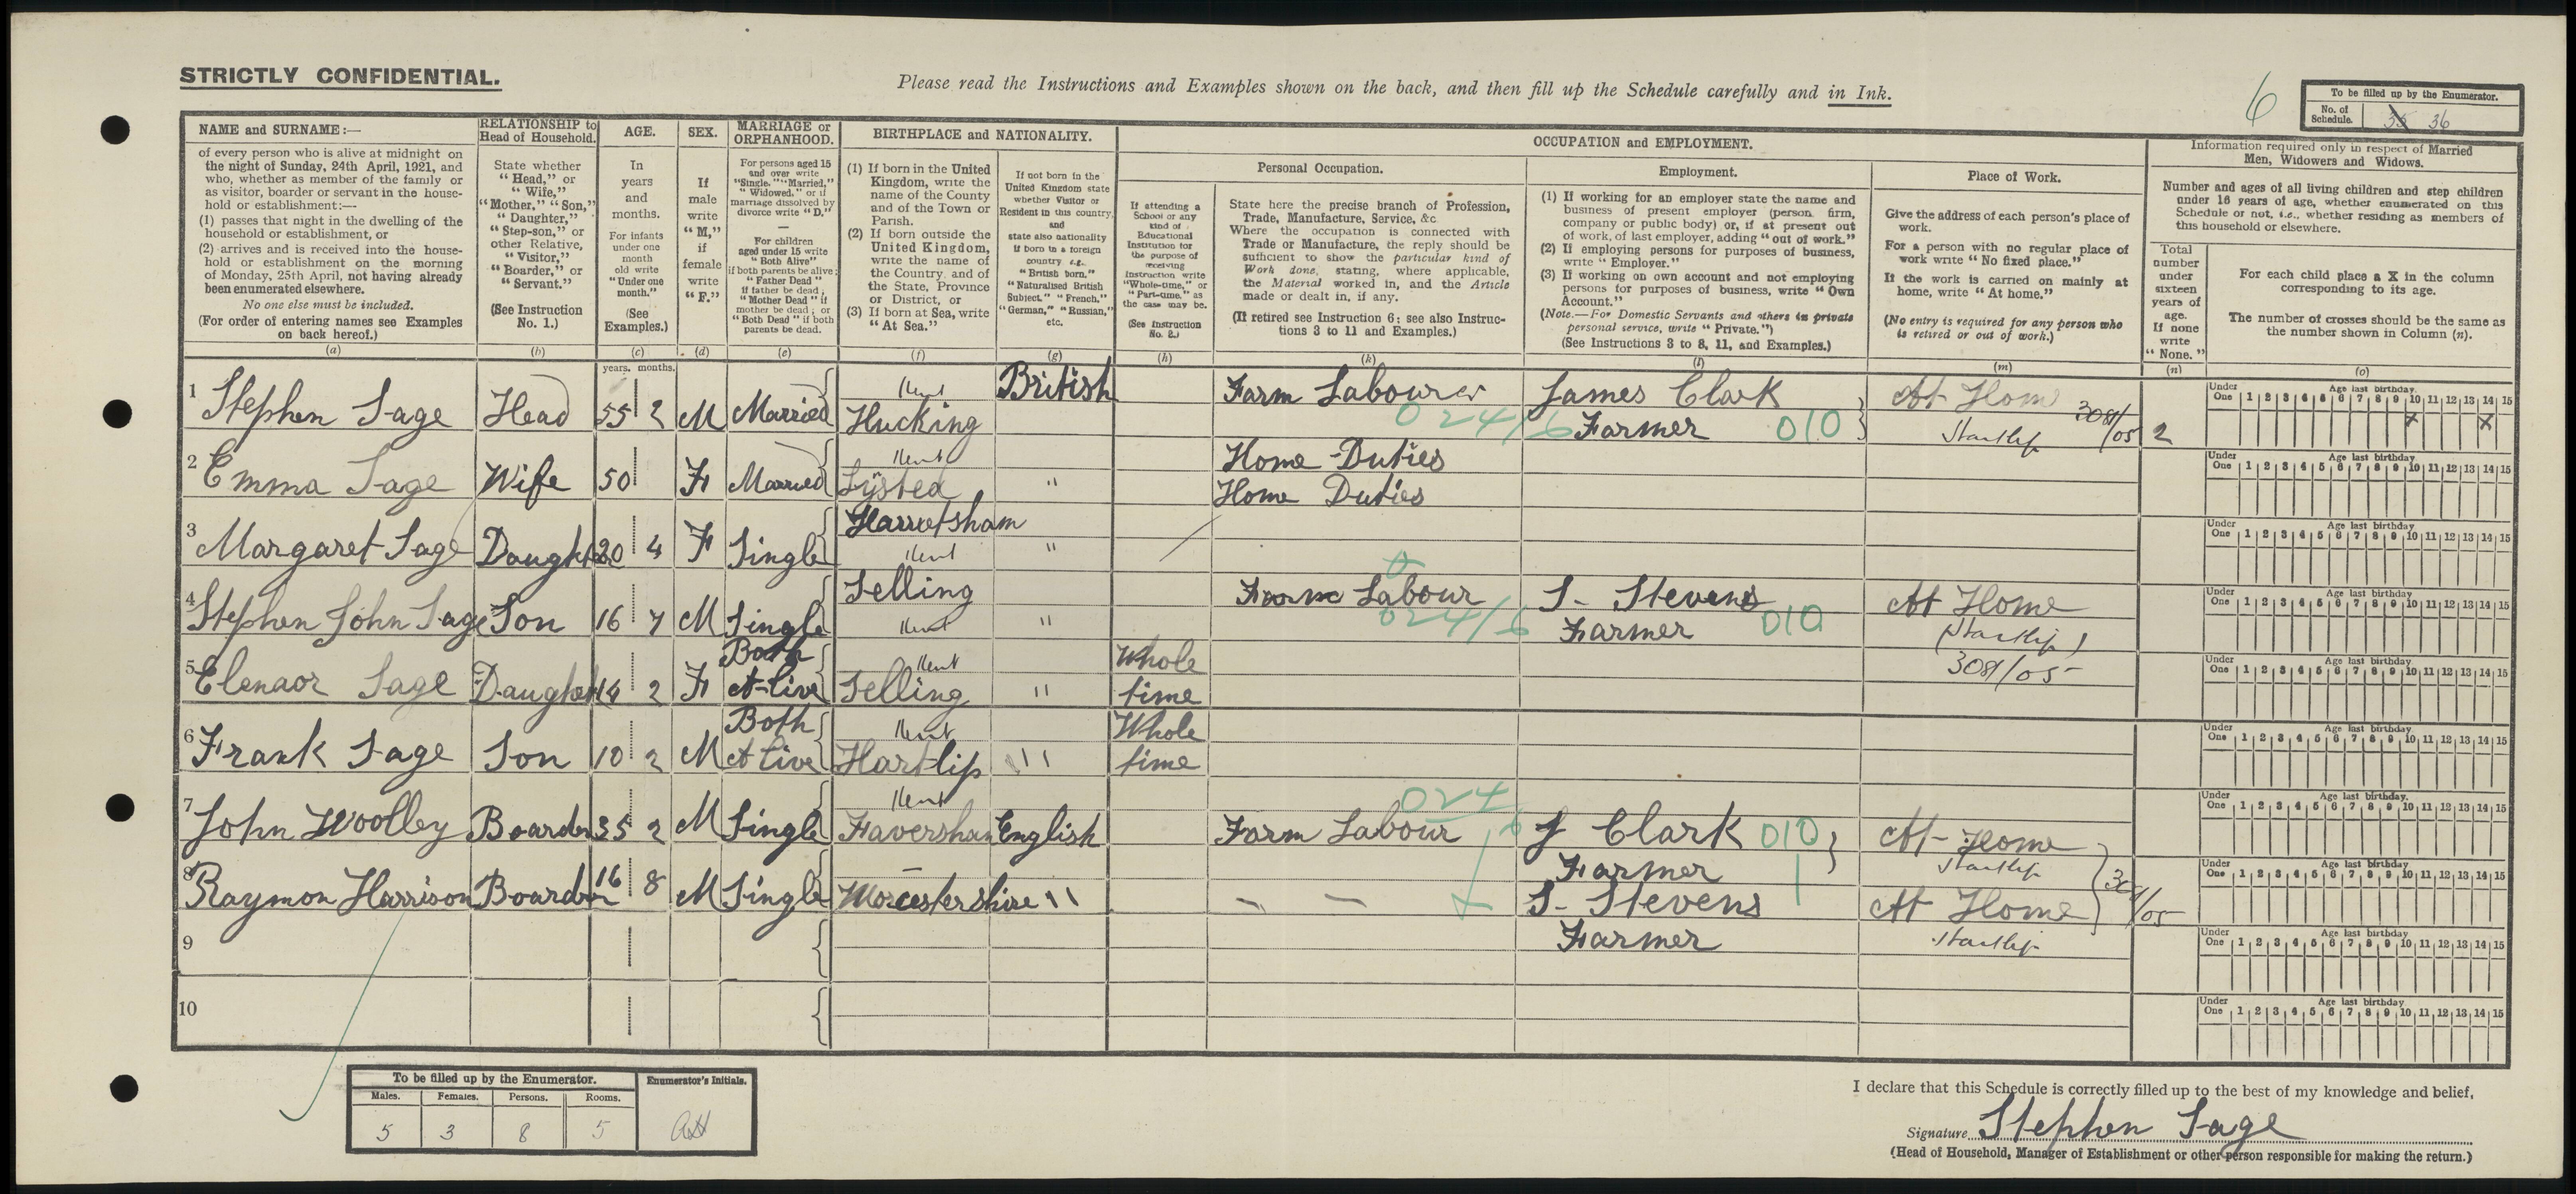 STRICTLY CONFIDENTIAL.
Please read the Instructions and Examples shown on the back, and then fill up the Schedule carefully and in Ink.
6
To be filled up by the Enumerator.
No. of Schedule.
35 36
NAME and SURNAME:—
of every person who is alive at midnight on
the night of Sunday, 24th April, 1921, and
who, whether as member of the family or
as visitor, boarder or servant in the house-
hold or establishment:—
(1) passes that night in the dwelling of the
household or establishment, or
(2) arrives and is received into the house-
hold or establishment on the morning
of Monday, 25th April, not having already
been enumerated elsewhere.
No one else must be included.
(For order of entering names see Examples
on back hereof.)
(a)
RELATIONSHIP to
Head of Household.
State whether
"Head," or
"Wife,"
"Mother," "Son,"
"Daughter,"
"Step-son," or
other Relative,
"Visitor,"
"Boarder," or
"Servant."
(See Instruction
No. 1.)
(b)
AGE.
In
years
and
months.
For infants
under one
month
old write
"Under one
month."
(See
Examples.)
(c)
SEX.
If
male
write
"M,"
if
female
write
"F."
(d)
MARRIAGE or
ORPHANHOOD.
For persons aged 15
and over write
"Single," "Married,"
"Widowed," or if
marriage dissolved by
divorce write "D."
—
For children
aged under 15 write
"Both Alive"
if both parents be alive;
"Father Dead"
if father be dead;
"Mother Dead" if
mother be dead; or
"Both Dead" if both
parents be dead.
(e)
BIRTHPLACE and NATIONALITY.
(1) If born in the United
Kingdom, write the
name of the County
and of the Town or
Parish.
(2) If born outside the
United Kingdom,
write the name of
the Country, and of
the State, Province
or District, or
(3) If born at Sea, write
"At Sea."
(f)
If not born in the
United Kingdom state
whether Visitor or
Resident in this country,
and
state also nationality
if born in a foreign
country e.g.
"British born,"
"Naturalised British
Subject," "French,"
"German," "Russian,"
etc.
(g)
OCCUPATION and EMPLOYMENT.
Personal Occupation.
If attending a
School or any
kind of
Educational
Institution for
the purpose of
receiving
instruction write
"Whole-time," or
"Part-time," as
the case may be.
(See Instruction
No. 2.)
(h)
State here the precise branch of Profession,
Trade, Manufacture, Service, &c.
Where the occupation is connected with
Trade or Manufacture, the reply should be
sufficient to show the particular kind of
Work done, stating, where applicable,
the Material worked in, and the Article
made or dealt in, if any.
(If retired see Instruction 6; see also Instruc-
tions 3 to 11 and Examples.)
(k)
Employment.
(1) If working for an employer state the name and
business of present employer (person, firm,
company or public body) or, if at present out
of work, of last employer, adding "out of work."
(2) If employing persons for purposes of business,
write "Employer."
(3) If working on own account and not employing
persons for purposes of business, write "Own
Account."
(Note.—For Domestic Servants and others in private
personal service, write "Private.")
(See Instructions 3 to 8, 11, and Examples.)
(l)
Place of Work.
Give the address of each person's place of
work.
For a person with no regular place of
work write "No fixed place."
If the work is carried on mainly at
home, write "At home."
(No entry is required for any person who
is retired or out of work.)
(m)
Information required only in respect of Married
Men, Widowers and Widows.
Number and ages of all living children and step children
under 16 years of age, whether enumerated on this
Schedule or not, i.e., whether residing as members of
this household or elsewhere.
Total
number
under
sixteen
years of
age.
If none
write
"None."
(n)
For each child place a X in the column
corresponding to its age.
The number of crosses should be the same as
the number shown in Column (n).
(o)
years. months.
1 Stephen Sage Head 55 2 M Married Kent Hucking British Farm Labourer 024/6 James Clark Farmer 010 At Home Hartlip 308/05 2
Under One Age last birthday. 1 2 3 4 5 6 7 8 9 10 11 12 13 14 15
X X
2 Emma Sage Wife 50 F Married Kent Lysted " Home Duties
Home Duties
Under One Age last birthday. 1 2 3 4 5 6 7 8 9 10 11 12 13 14 15
3 Margaret Sage Daught 20 4 F Single Harrietsham Kent "
Under One Age last birthday. 1 2 3 4 5 6 7 8 9 10 11 12 13 14 15
4 Stephen John Sage Son 16 7 M Single Selling Kent " Farm Labour 024/6 S. Stevens Farmer 010 At Home (Hartlip) 308/05
Under One Age last birthday. 1 2 3 4 5 6 7 8 9 10 11 12 13 14 15
5 Elenaor Sage Daughter 14 2 F Both Alive Kent Selling " Whole time
Under One Age last birthday. 1 2 3 4 5 6 7 8 9 10 11 12 13 14 15
6 Frank Sage Son 10 2 M Both Alive Kent Hartlip " Whole time
Under One Age last birthday. 1 2 3 4 5 6 7 8 9 10 11 12 13 14 15
7 John Woolley Boarder 35 2 M Single Kent Faversham English Farm Labour 024/6 J Clark 010 Farmer At Home Hartlip
Under One Age last birthday. 1 2 3 4 5 6 7 8 9 10 11 12 13 14 15
8 Raymon Harrison Boarder 16 8 M Single Worcestershire " — — S. Stevens Farmer At Home Hartlip 308/05
Under One Age last birthday. 1 2 3 4 5 6 7 8 9 10 11 12 13 14 15
9
Under One Age last birthday. 1 2 3 4 5 6 7 8 9 10 11 12 13 14 15
10
Under One Age last birthday. 1 2 3 4 5 6 7 8 9 10 11 12 13 14 15
To be filled up by the Enumerator.
Males. Females. Persons. Rooms.
5 3 8 5
Enumerator's Initials.
I declare that this Schedule is correctly filled up to the best of my knowledge and belief,
Signature Stephen Sage
(Head of Household, Manager of Establishment or other person responsible for making the return.)